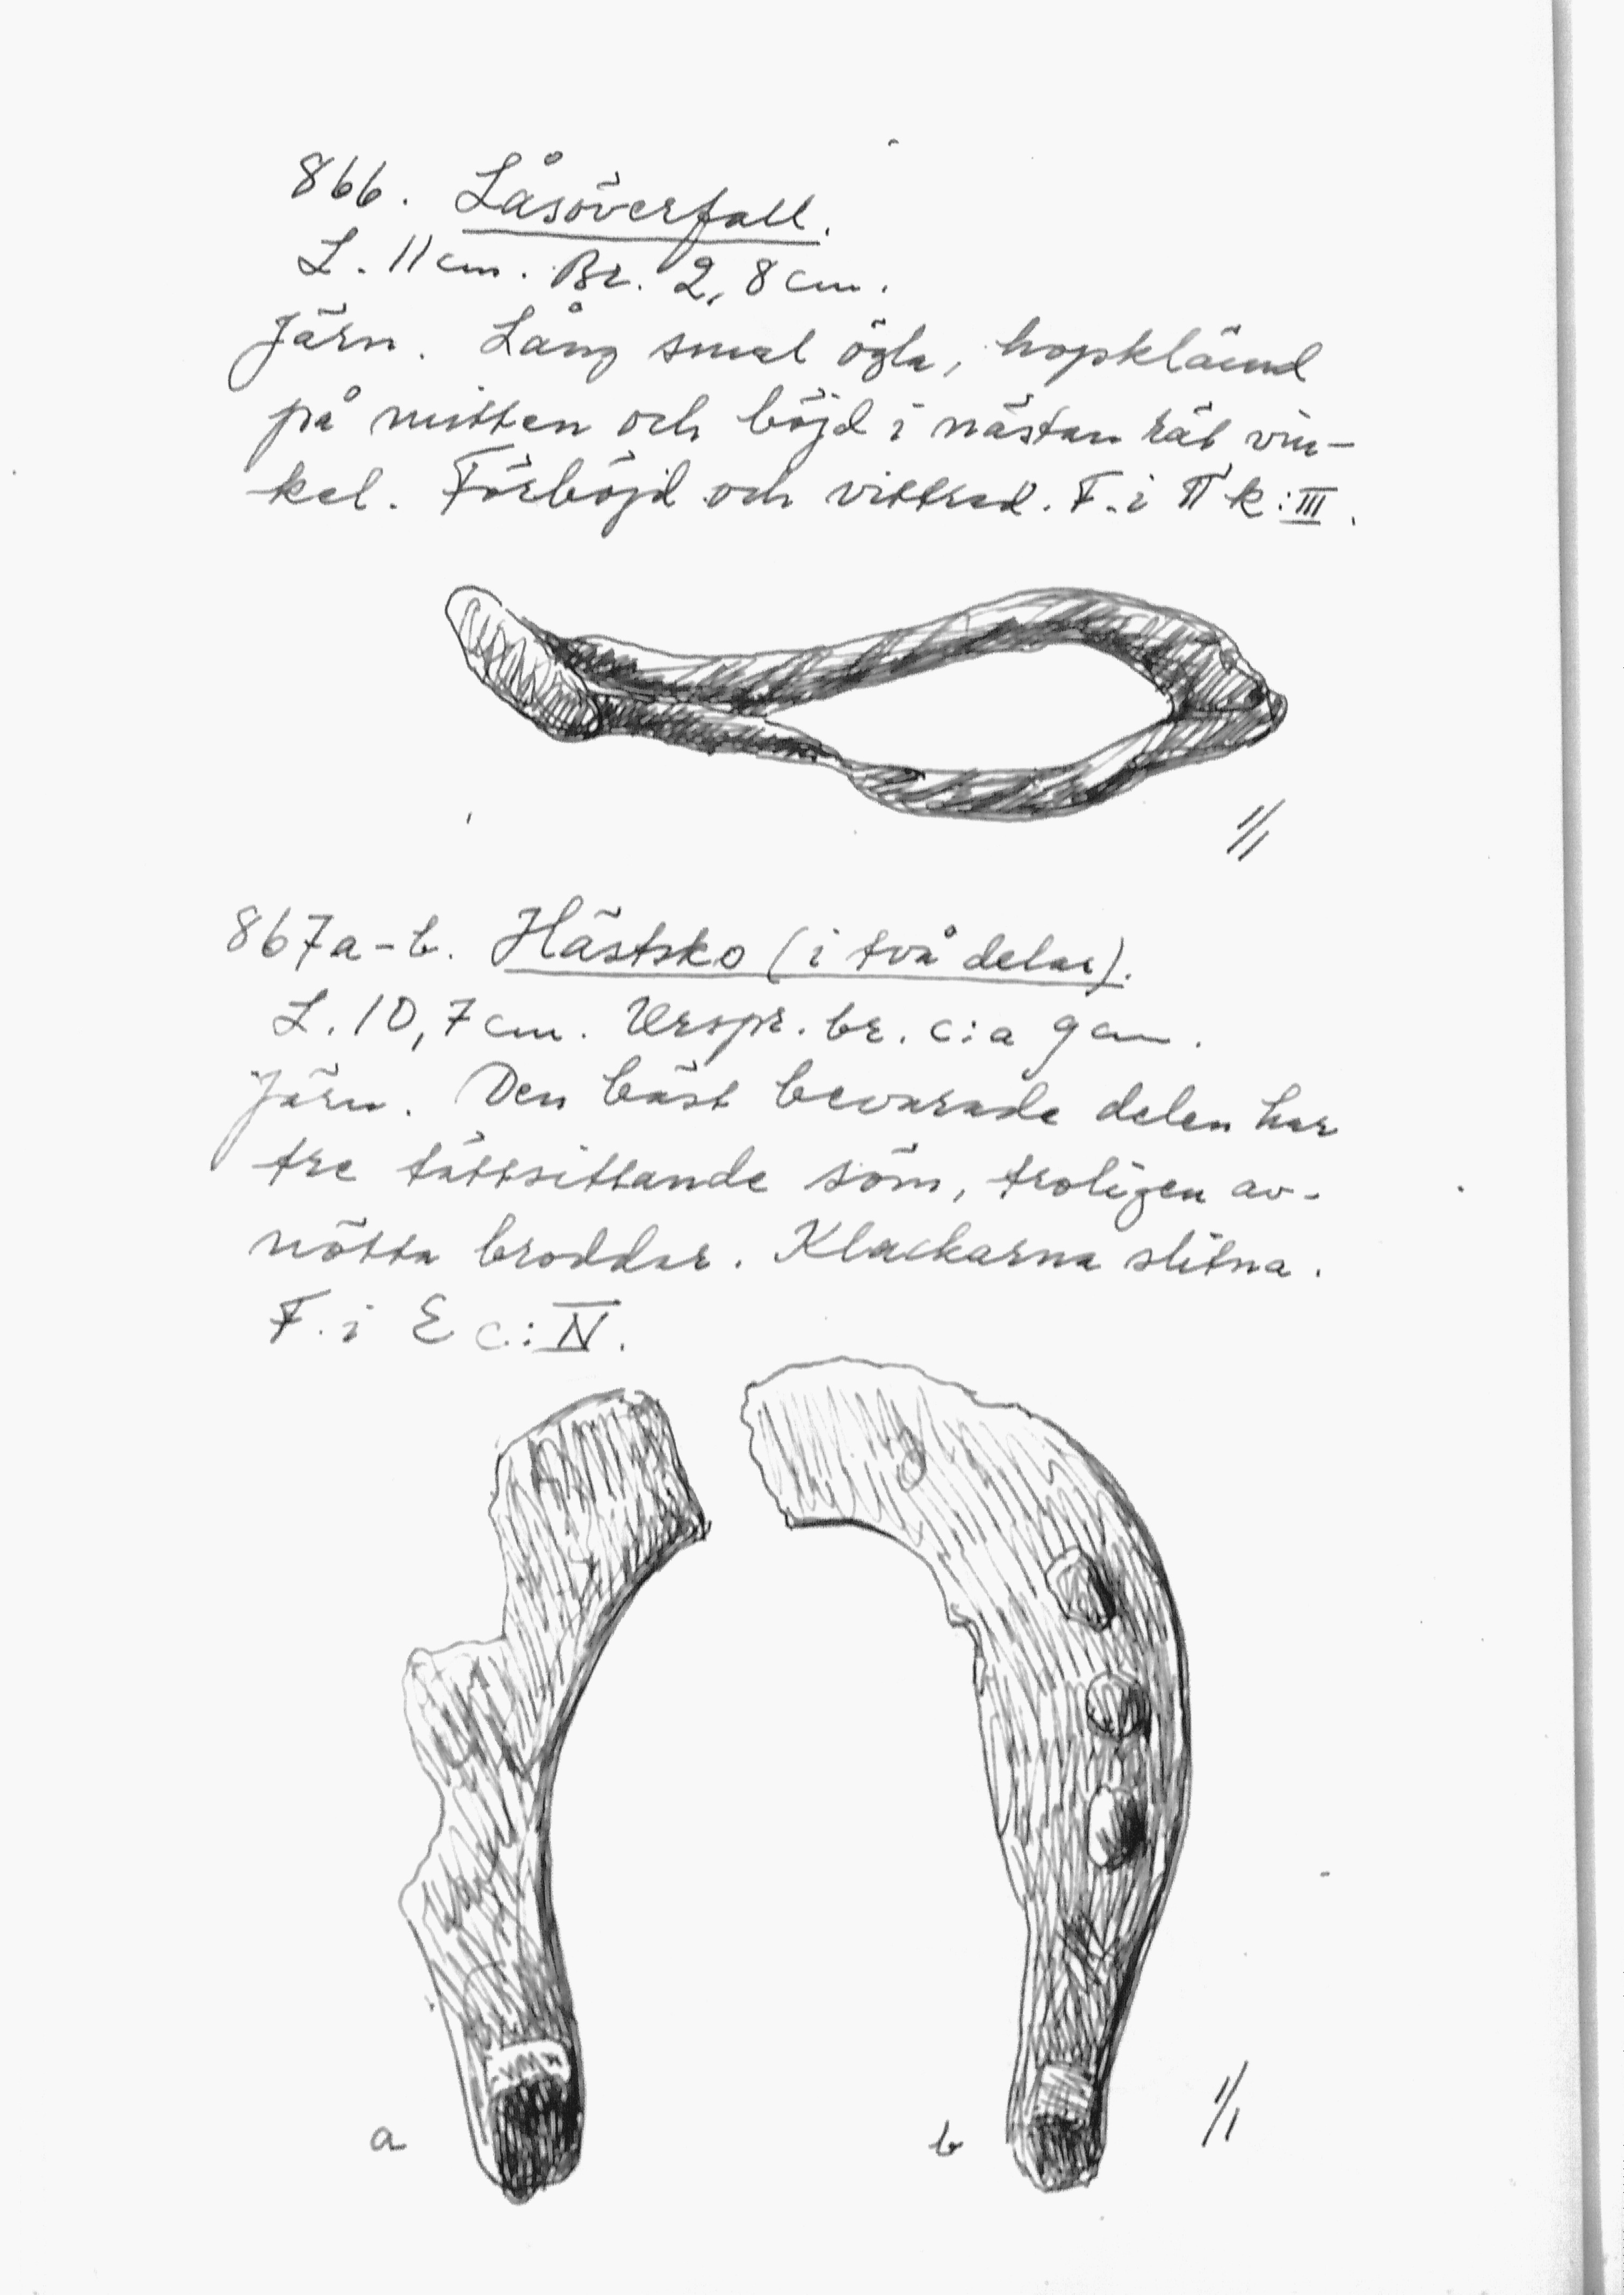 866. Låsöverfall.
L. 11 cm. Br. 2,8 cm.
Järn. Lång smal ögla, hopklämd
på mitten och böjd i nästan rät vin-
kel. Förböjd och vittrad. F. i π k:III.
1/1
867a-b. Hästsko (i två delar).
L. 10,7 cm. Urspr. br. c:a 9 cm.
Järn. Den bäst bevarade delen har
tre tättsittande söm, troligen av-
nötta broddar. Klackarna slitna.
F. i E c:IV.
a b 1/1